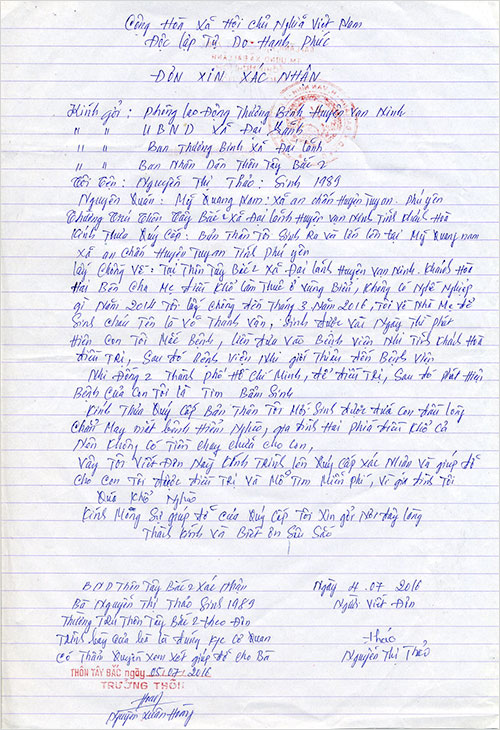 Cộng Hoà Xã Hội Chủ Nghĩa Việt Nam
Độc lập Tự Do - Hạnh Phúc
ĐƠN XIN XÁC NHẬN
Kính gởi : Phòng lao Động Thương Binh Huyện Vạn Ninh
" " UBND Xã Đại Lãnh
" " Ban Thương Binh Xã Đại lãnh
" " Ban Nhân Dân Thôn Tây Bắc 2
Tôi Tên : Nguyễn Thị Thảo : Sinh 1989
Nguyên Quán : Mỹ Quang Nam : xã an chấn Huyện Tuy an. Phú yên
Thường Trú Thôn Tây Bắc 2 xã Đại lãnh Huyện vạn Ninh Tỉnh Khánh Hoà
Kính Thưa Quý Cấp : Bản Thân Tôi Sinh Ra và lớn lên tại Mỹ Quang nam
xã an chấn Huyện Tuy an Tỉnh Phú yên
lấy Chồng Về : Tại Thôn Tây Bắc 2 xã Đại lãnh Huyện vạn Ninh. Khánh Hoà
Hai Bên Cha Mẹ điều Khổ làm Thuê ở vùng Biển, Không có Nghề Nghiệp
gì Năm 2014 Tôi lấy Chồng đến Tháng 3 Năm 2016, Tôi về Nhà Mẹ để
Sinh Cháu Tên là Võ Thanh Vân, Sinh được vài Ngày thì phát
Hiện Con Tôi Mắc Bệnh, liền đưa vào Bệnh viện Nhi Tỉnh Khánh Hoà
điều Trị, Sau đó Bệnh Viện Nhi giới Thiệu đến Bệnh Viện
Nhi Đồng 2 Thành phố Hồ Chí Minh, để điều Trị, Sau đó phát Hiện
Bệnh Của Con Tôi là Tim Bẩm Sinh
Kính Thưa Quý Cấp Bản Thân Tôi Mới Sinh được đứa Con đầu lòng
Chẳn May mất Bệnh Hiểm Nghèo, gia đình Hai Phía điều Khổ cả
Nên Không Có Tiền Chạy chữa cho Con,
Vậy Tôi Viết Đơn Này Kính Trình lên Quý Cấp Xác Nhận Và giúp đỡ
Cho Con Tôi được điều Trị và Mổ Tim Miễn phí, Vì gia đình Tôi
Quá Khổ Nghèo
Kính Mong Sự giúp đỡ của Quý Cấp Tôi Xin gởi Nơi đây lòng
Thành Kính và Biết ơn Sâu Sắc
BND Thôn Tây Bắc 2 Xác Nhận
Bà Nguyễn Thị Thảo Sinh 1989
Thường Trú Thôn Tây Bắc 2 - theo đơn
Trình bày của bà là đúng Kính Cơ Quan
Có Thẩm Quyền Xem Xét giúp đỡ cho Bà
THÔN TÂY BẮC ngày 05/07/2016
TRƯỞNG THÔN
Nguyễn Xuân Hoàng
Ngày 4.07 2016
Người Viết Đơn
thảo
Nguyễn Thị Thảo